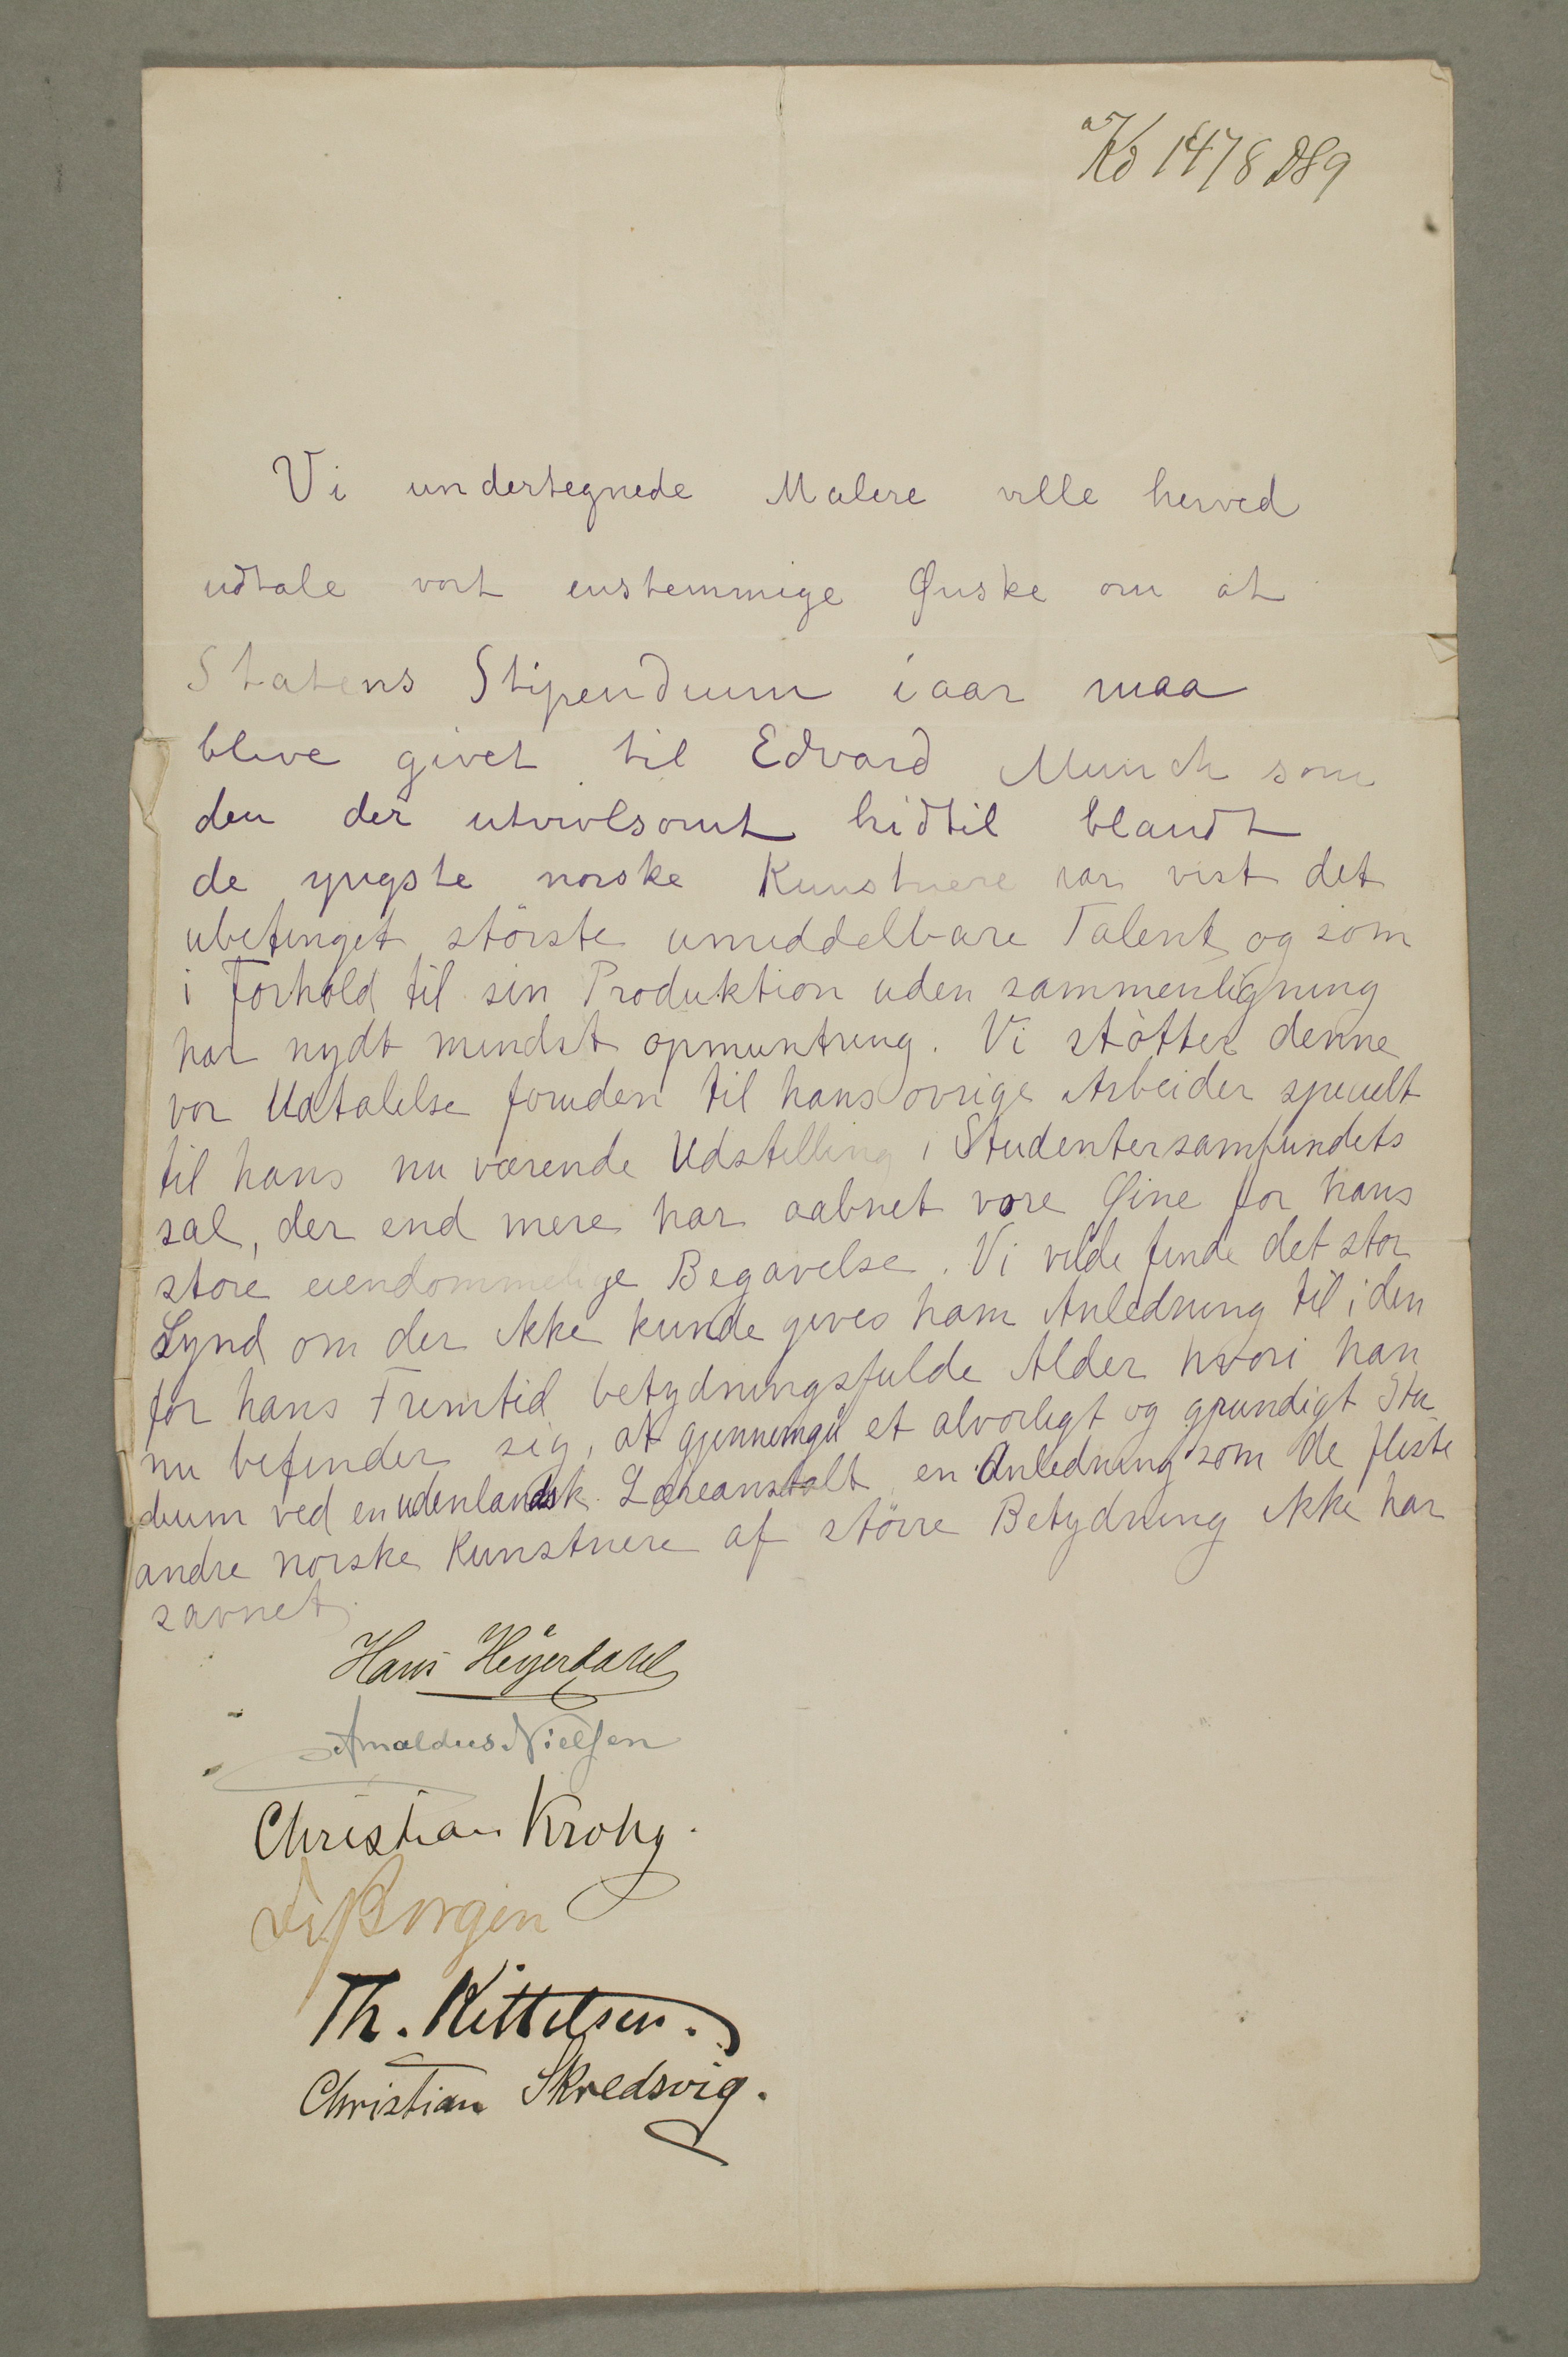 aKd 1478 D89
Vi undertegnede Malere ville herved
udtale vort enstemmige Ønske om at
Statens Stipendium iaar maa
blive givet til Edvard Munch som
den der utvivlsomt hidtil blandt
de yngste norske Kunstnere har vist det
ubetinget störste umiddelbare Talent og som
i Forhold til sin Produktion uden sammenligning
har nydt mindst opmuntring. Vi støtter denne
vor Udtalelse foruden til hans øvrige Arbeider specielt
til hans nu værende Udstilling i Studentersamfundets
sal, der end mere har aabnet vore Øine for hans
store eiendommelige Begavelse. Vi vilde finde det stor
Synd om der ikke kunde gives ham Anledning til i den
for hans Fremtid betydningsfulde Alder hvori han
nu befinder sig, at gjennemgå et alvorligt og grundigt Stu
dium ved en udenlandsk Læreanstalt, en Anledning som de fleste
andre norske Kunstnere af större Betydning ikke har
savnet.
Hans Heyerdahl
Amaldus Nielsen
Christian Krohg.
Borgen
Th. Kittelsen.
Christian Skredsvig.